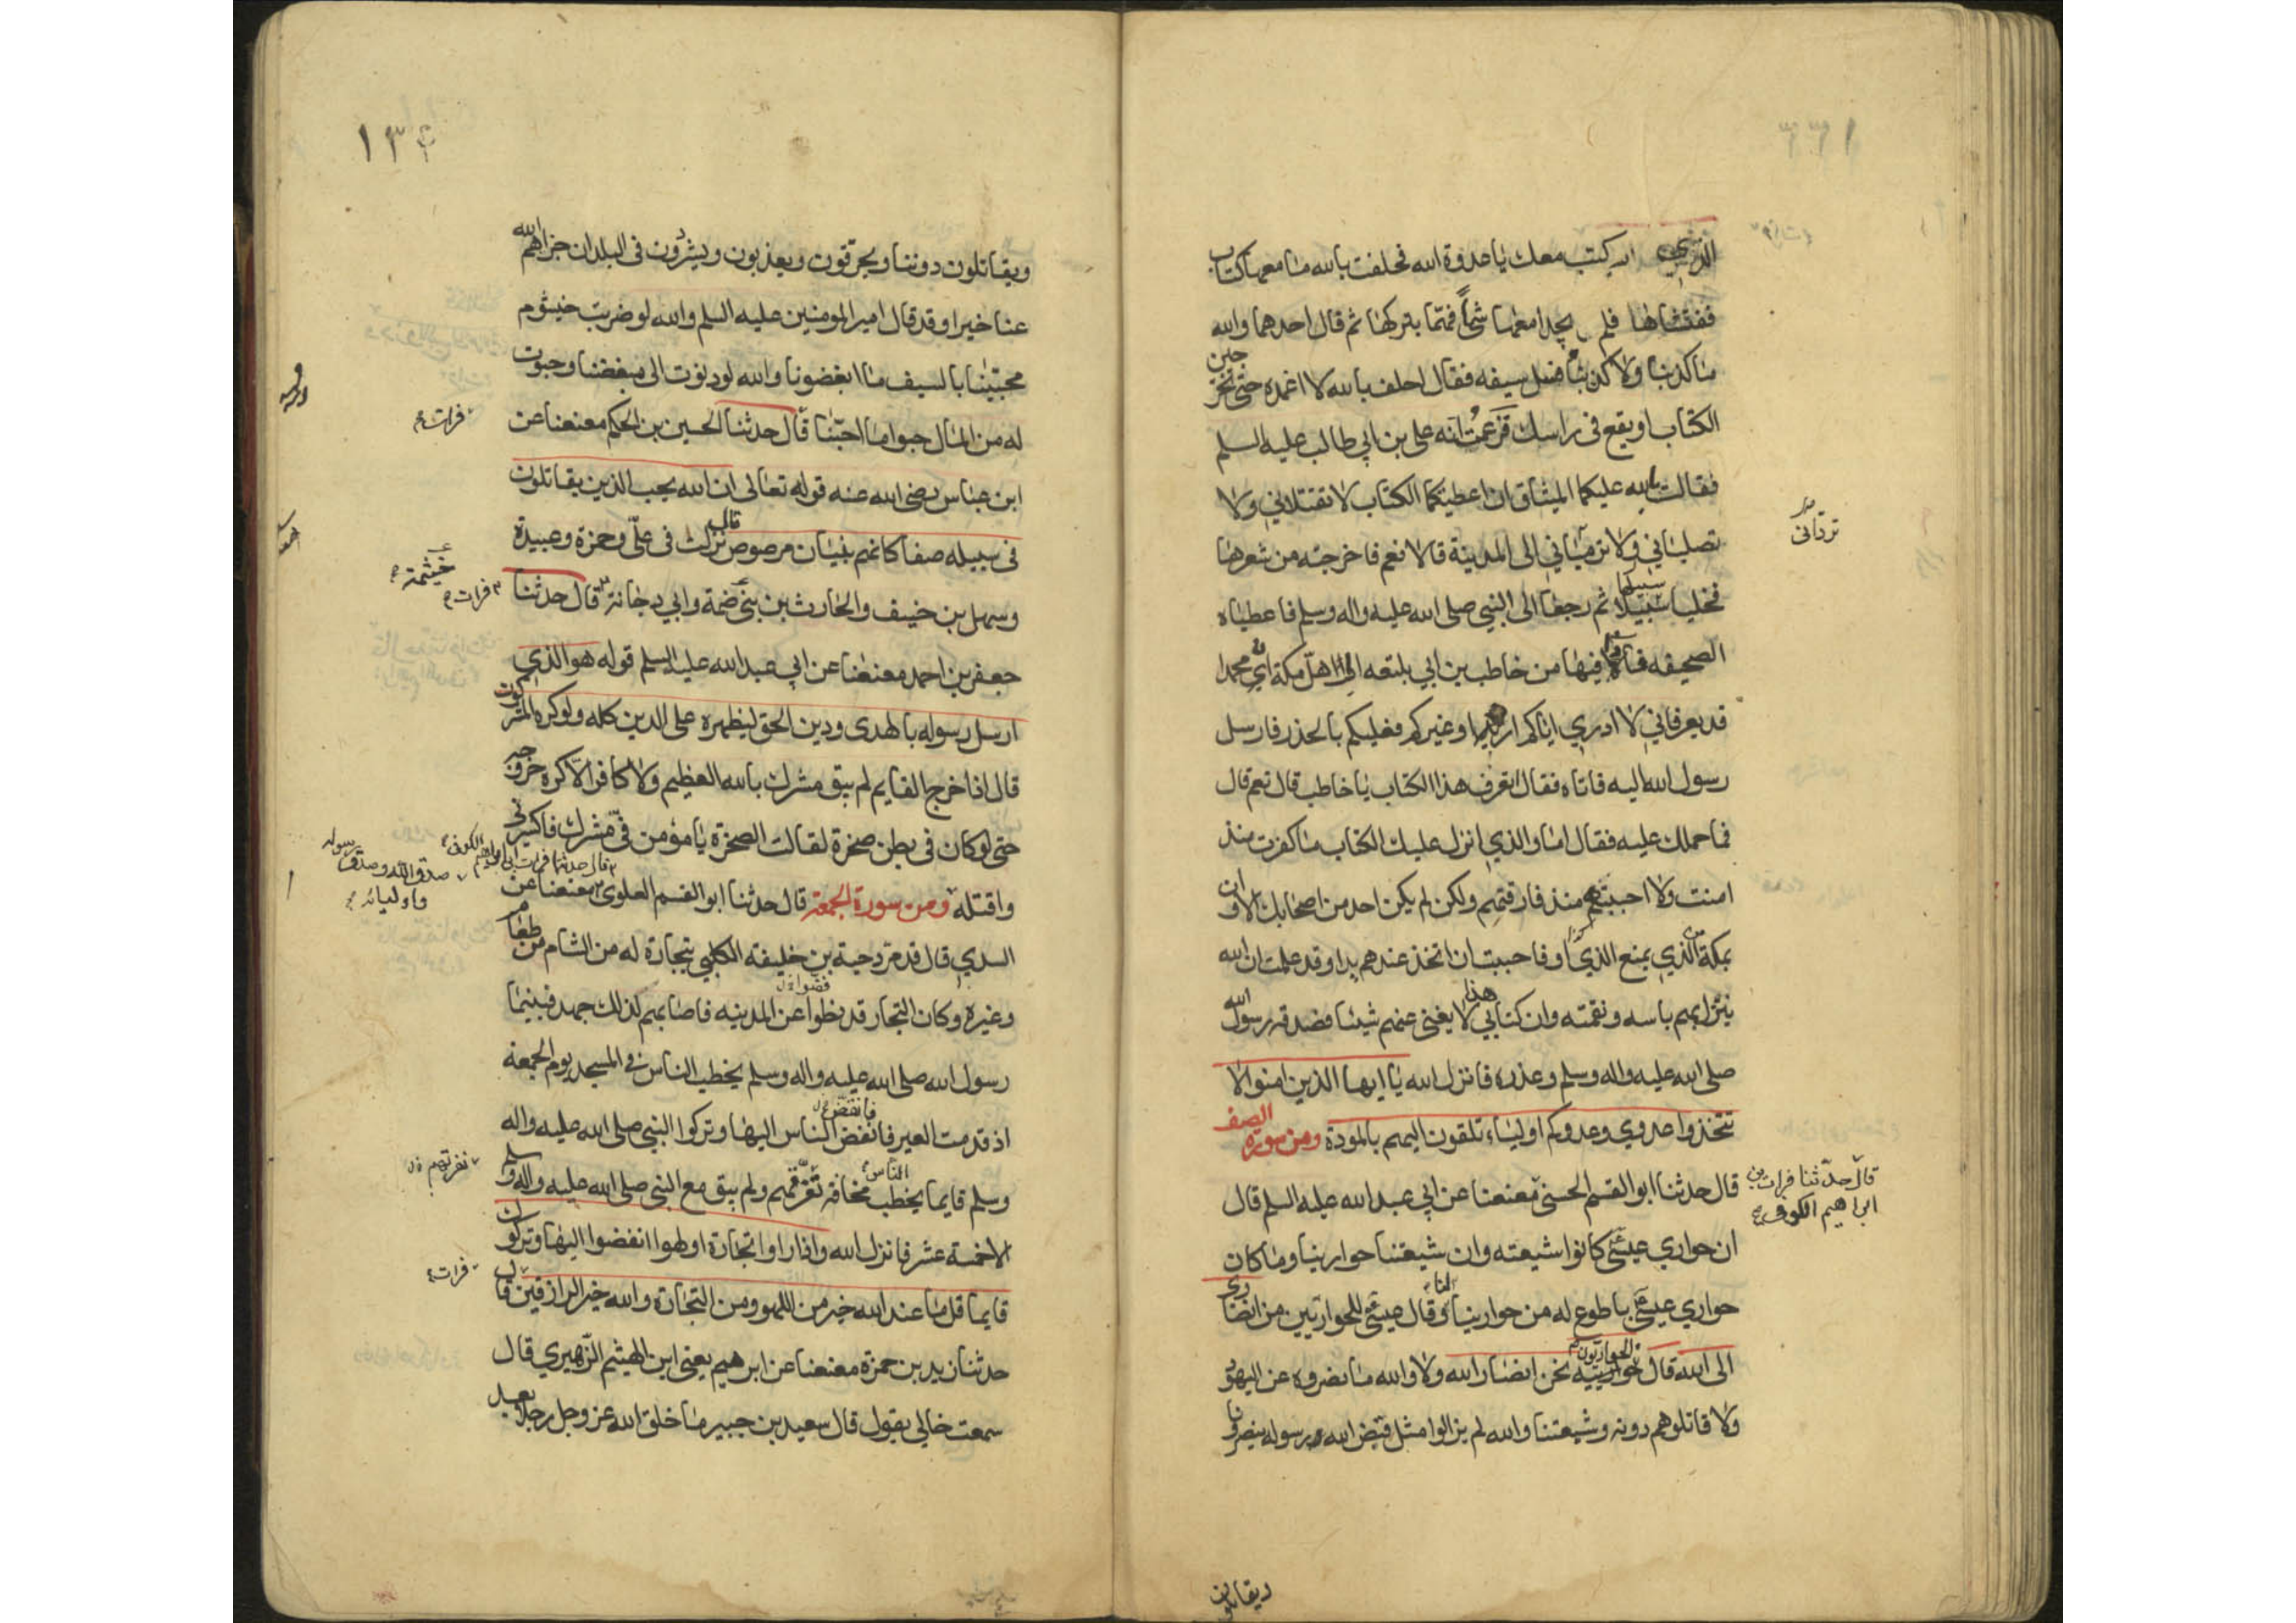 الذي كتب معك يا عدوة الله فحلفت بالله ما معها كتاب
ففتشاها فلم يجدا معها شيأ فهمّا بتركها ثم قال احدهما والله
ما كذبنا ولا كذبنا فسل سيفه فقال احلف بالله لا اغمده حتى تخرجين
الكتاب او يقع في راسك فزعمت انه علي بن ابي طالب عليه السلم
فقالت لله عليكما الميثاق ان اعطيتكما الكتاب لا تقتلاني ولا
تصلباني ولا تردّاني الى المدينة قالا نعم فاخرجته من شعرها
فخليا سبيلها ثم رجعا الى النبي صلى الله عليه واله وسلم فاعطياه
الصحيفه فاذا فيها من خاطب بن ابي بلتعه الى اهل مكة ان محمدا
قد يعرفاني لا ادري اياكم او غيركم فعليكم بالحذر فارسل
رسول الله اليه فاتاه فقال تعرف هذا الكتاب يا خاطب قال نعم قال
فما حملك عليه فقال اما والذي انزل عليك الكتاب ما كفرت منذ
امنت ولا احببتهم منذ فارقتهم ولكن لم يكن احد من اصحابك الا وان
بمكة الذي يمنع الذي او فاحببت ان اتخذ عندهم يدا وقد علمت ان الله
ينزل بهم باسه ونقمته وان كتابي هذا لا يغني عنهم شيئا فصدقه رسول الله
صلى الله عليه واله وسلم وعذره فانزل الله يا ايها الذين امنوا لا
تتخذوا عدوي وعدوكم اولياء تلقون اليهم بالمودة ومن سورة الصف
قال حدثنا ابو القسم الحسني معنعنا عن ابي عبد الله عليه السلم قال
قال حدّثنا فرات بن
ابراهيم الكوفي
ان حواري عيسى كانوا شيعته وان شيعتنا حوارينا وما كان
حواري عيسى باطوع له من حوارينا لنا وقال عيسى للحواريين من انصاري
الى الله قال الحواريون نحن انصار الله ولا والله ما نصروه عن اليهود
ولا قاتلوهم دونه وشيعتنا والله لم يزالوا مثل قبض الله رسوله ينصرونا
ويقاتلون
١٣٤
ويقاتلون دوننا ويحرّقون ويعذبون ويشردون في البلدان جزاهم الله
عنا خيرا وقد قال امير المومنين عليه السلم والله لو ضربت خيشوم
محبّينا بالسيف ما ابغضونا والله لو دنوت الى مبغضنا وحبوت
له من المال حبوا ما احبّنا قال حدثنا الحسين بن الحكم معنعنا عن
فرات
ابن عباس رضى الله عنه قوله تعالى ان الله يحب الذين يقاتلون
في سبيله صفا كانهم بنيان مرصوص قال نزلت في علي وحمزة وعبيدة
وسهل بن حنيف والحارث بن ضمة وابي دجانة قال حدثنا
خيثمة
فرات
جعفر بن احمد معنعنا عن ابي عبد الله عليه السلم قوله هو الذي
ارسل رسوله بالهدى ودين الحق ليظهره على الدين كله ولو كره المشركون
قال اذا خرج القايم لم يبق مشرك بالله العظيم ولا كافر الا كره خروجه
حتى لو كان في بطن صخرة لقالت الصخرة يا مؤمن فيّ مشرك فاكسرني
واقتله ومن سورة الجمعة قال حدثنا ابو القسم العلوي معنعنا عن
قال حدثنا فرات بن ابراهيم الكوفي
صدق الله وصدق رسوله
واوليائه
السدي قال قدم دحية بن خليفه الكلبي بتجارة له من الشام من طعام
وغيره وكان التجار قد بطوا عن المدينه فاصابهم لذلك جهد فبينما
رسول الله صلى الله عليه واله وسلم يخطب الناس في المسجد يوم الجمعة
اذ قدمت العير فانفض الناس اليها وتركوا النبي صلى الله عليه واله وسلم
وسلم قايما يخطب مخافة تفرقهم ولم يبق مع النبي صلى الله عليه واله و
الا خمسة عشر فانزل الله واذا راوا تجارة او لهوا انفضوا اليها وتركو
قايما قل ما عند الله خير من اللهو ومن التجارة والله خير الرازقين قال
فرات
حدثنا زيد بن حمزة معنعنا عن ابرهيم يعني ابن الهيثم الزهيري قال
سمعت خالي يقول قال سعيد بن جبير ما خلق الله عز وجل رجلا بعد